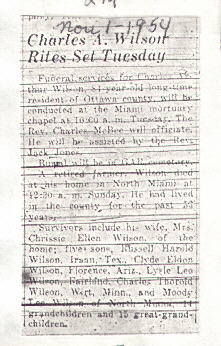 Nov 1-1954
Charles A. Wilson
Rites Set Tuesday
Funeral services for Charles Ar-
thur Wilson, 81-year-old long-time
resident of Ottawa county, will be
conducted at the Miami mortuary
chapel at 10:00 a.m. Tuesday. The
Rev. Charles McBee will officiate.
He will be assisted by the Rev.
Jack Jones.
Burial will be in GAR cemetery.
A retired farmer, Wilson died
at his home in North Miami at
12:30 a.m. Sunday. He had lived
in the county for the past
years.
Survivors include his wife, Mrs.
Chrissie Ellen Wilson, of the
home; five sons, Russell Harold
Wilson, Iraan, Tex., Clyde Eldon
Wilson, Florence, Ariz., Lysle Leo
Wilson, Fairland, Charles Thorold
Wilson, Wert, Minn., and Moody
Lee Wilson, of North Miami, 14
grandchildren and 15 great-grand-
children.